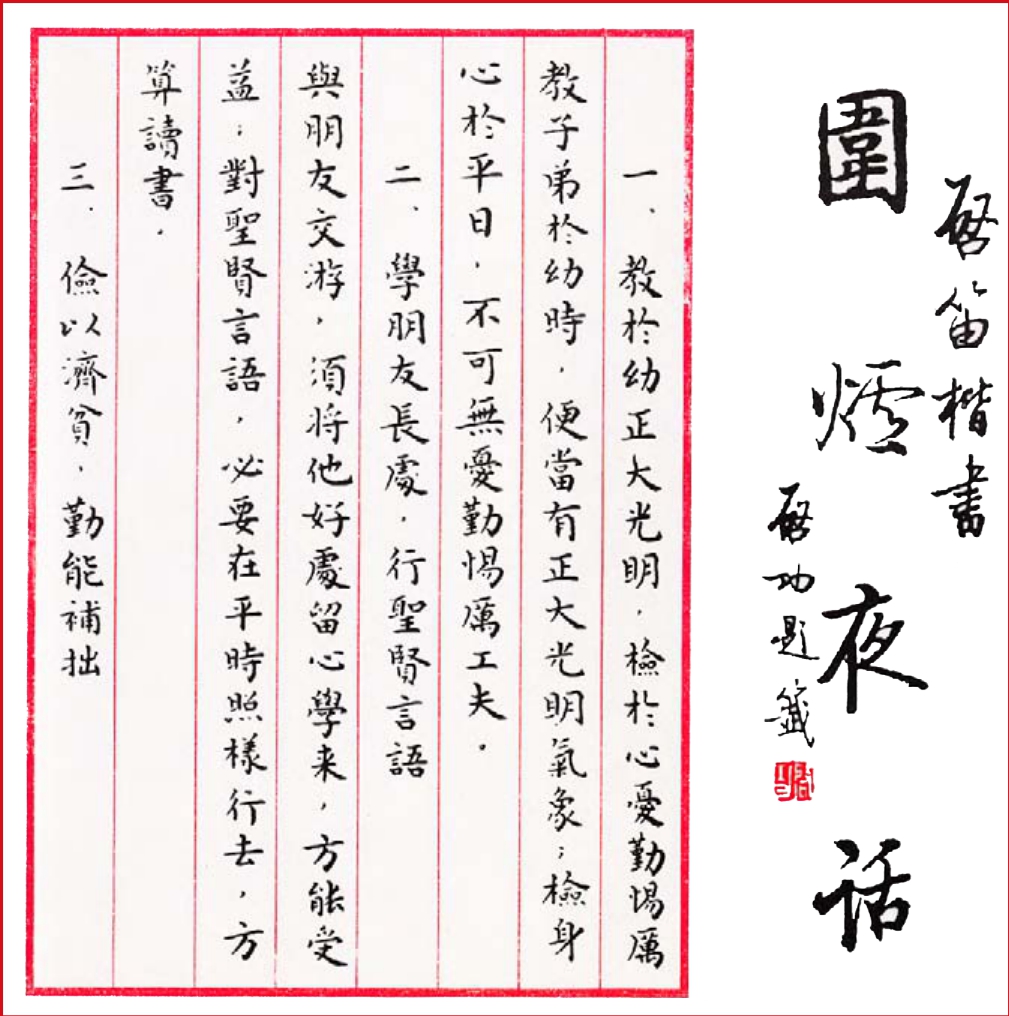 啓笛楷書
圍爐夜話
啓功題籤
一．教於幼正大光明，檢於心憂勤惕厲
教子弟於幼時，便當有正大光明氣象；檢身
心於平日，不可無憂勤惕厲工夫。
二．學朋友長處，行聖賢言語
與朋友交游，須將他好處留心學来，方能受
益；對聖賢言語，必要在平時照樣行去，方
算讀書．
三．儉以濟貧，勤能補拙